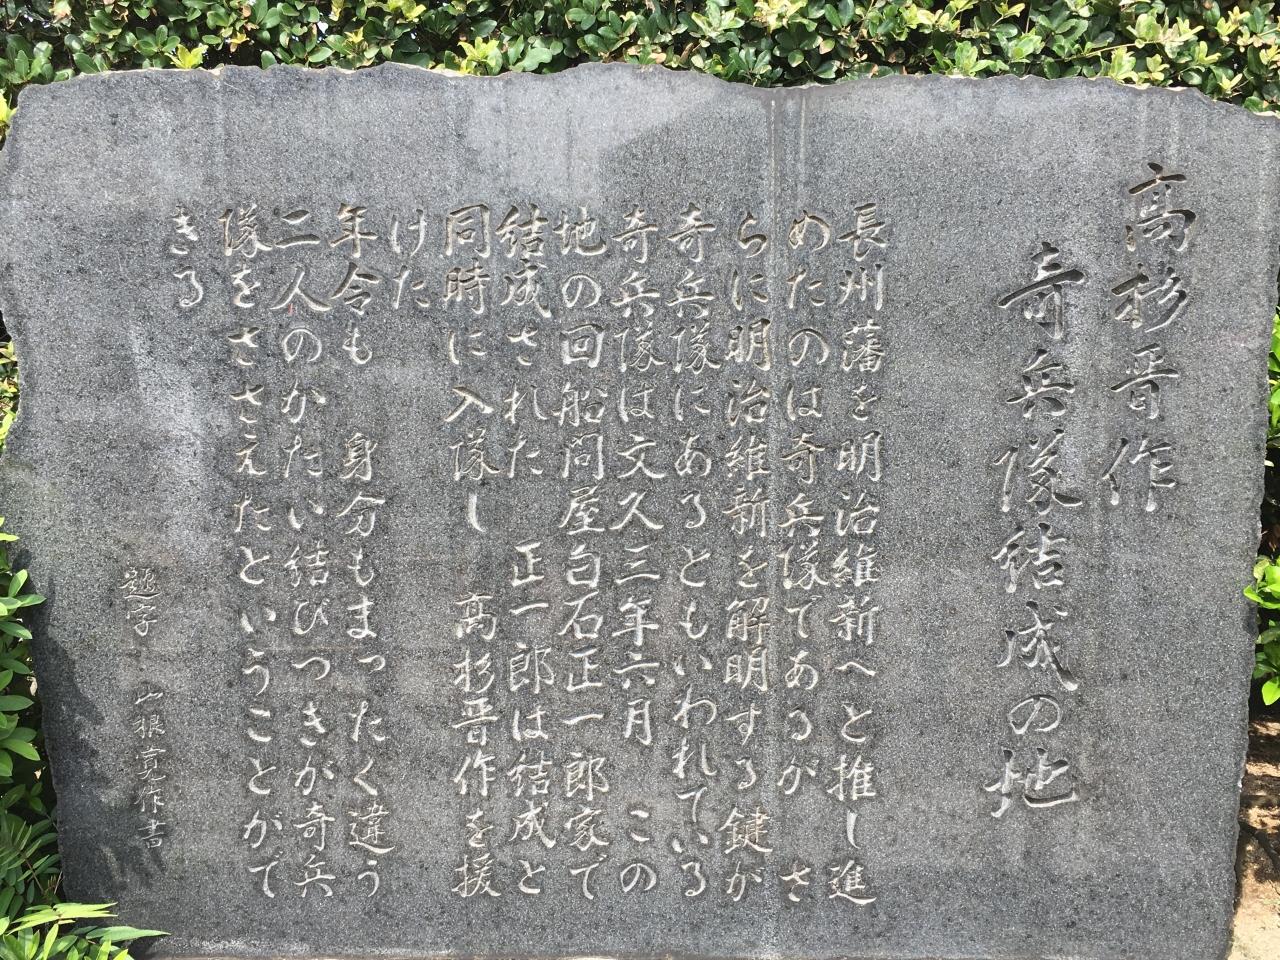 高杉晋作
奇兵隊結成の地
長州藩を明治維新へと推し進
めたのは奇兵隊であるが さ
らに明治維新を解明する鍵が
奇兵隊にあるともいわれている
奇兵隊は文久三年六月 この
地の回船問屋白石正一郎家で
結成された 正一郎は結成と
同時に入隊し 高杉晋作を援
けた
年令も 身分もまったく違う
二人のかたい結びつきが奇兵
隊をささえたということがで
きる
題字 山根寛作書